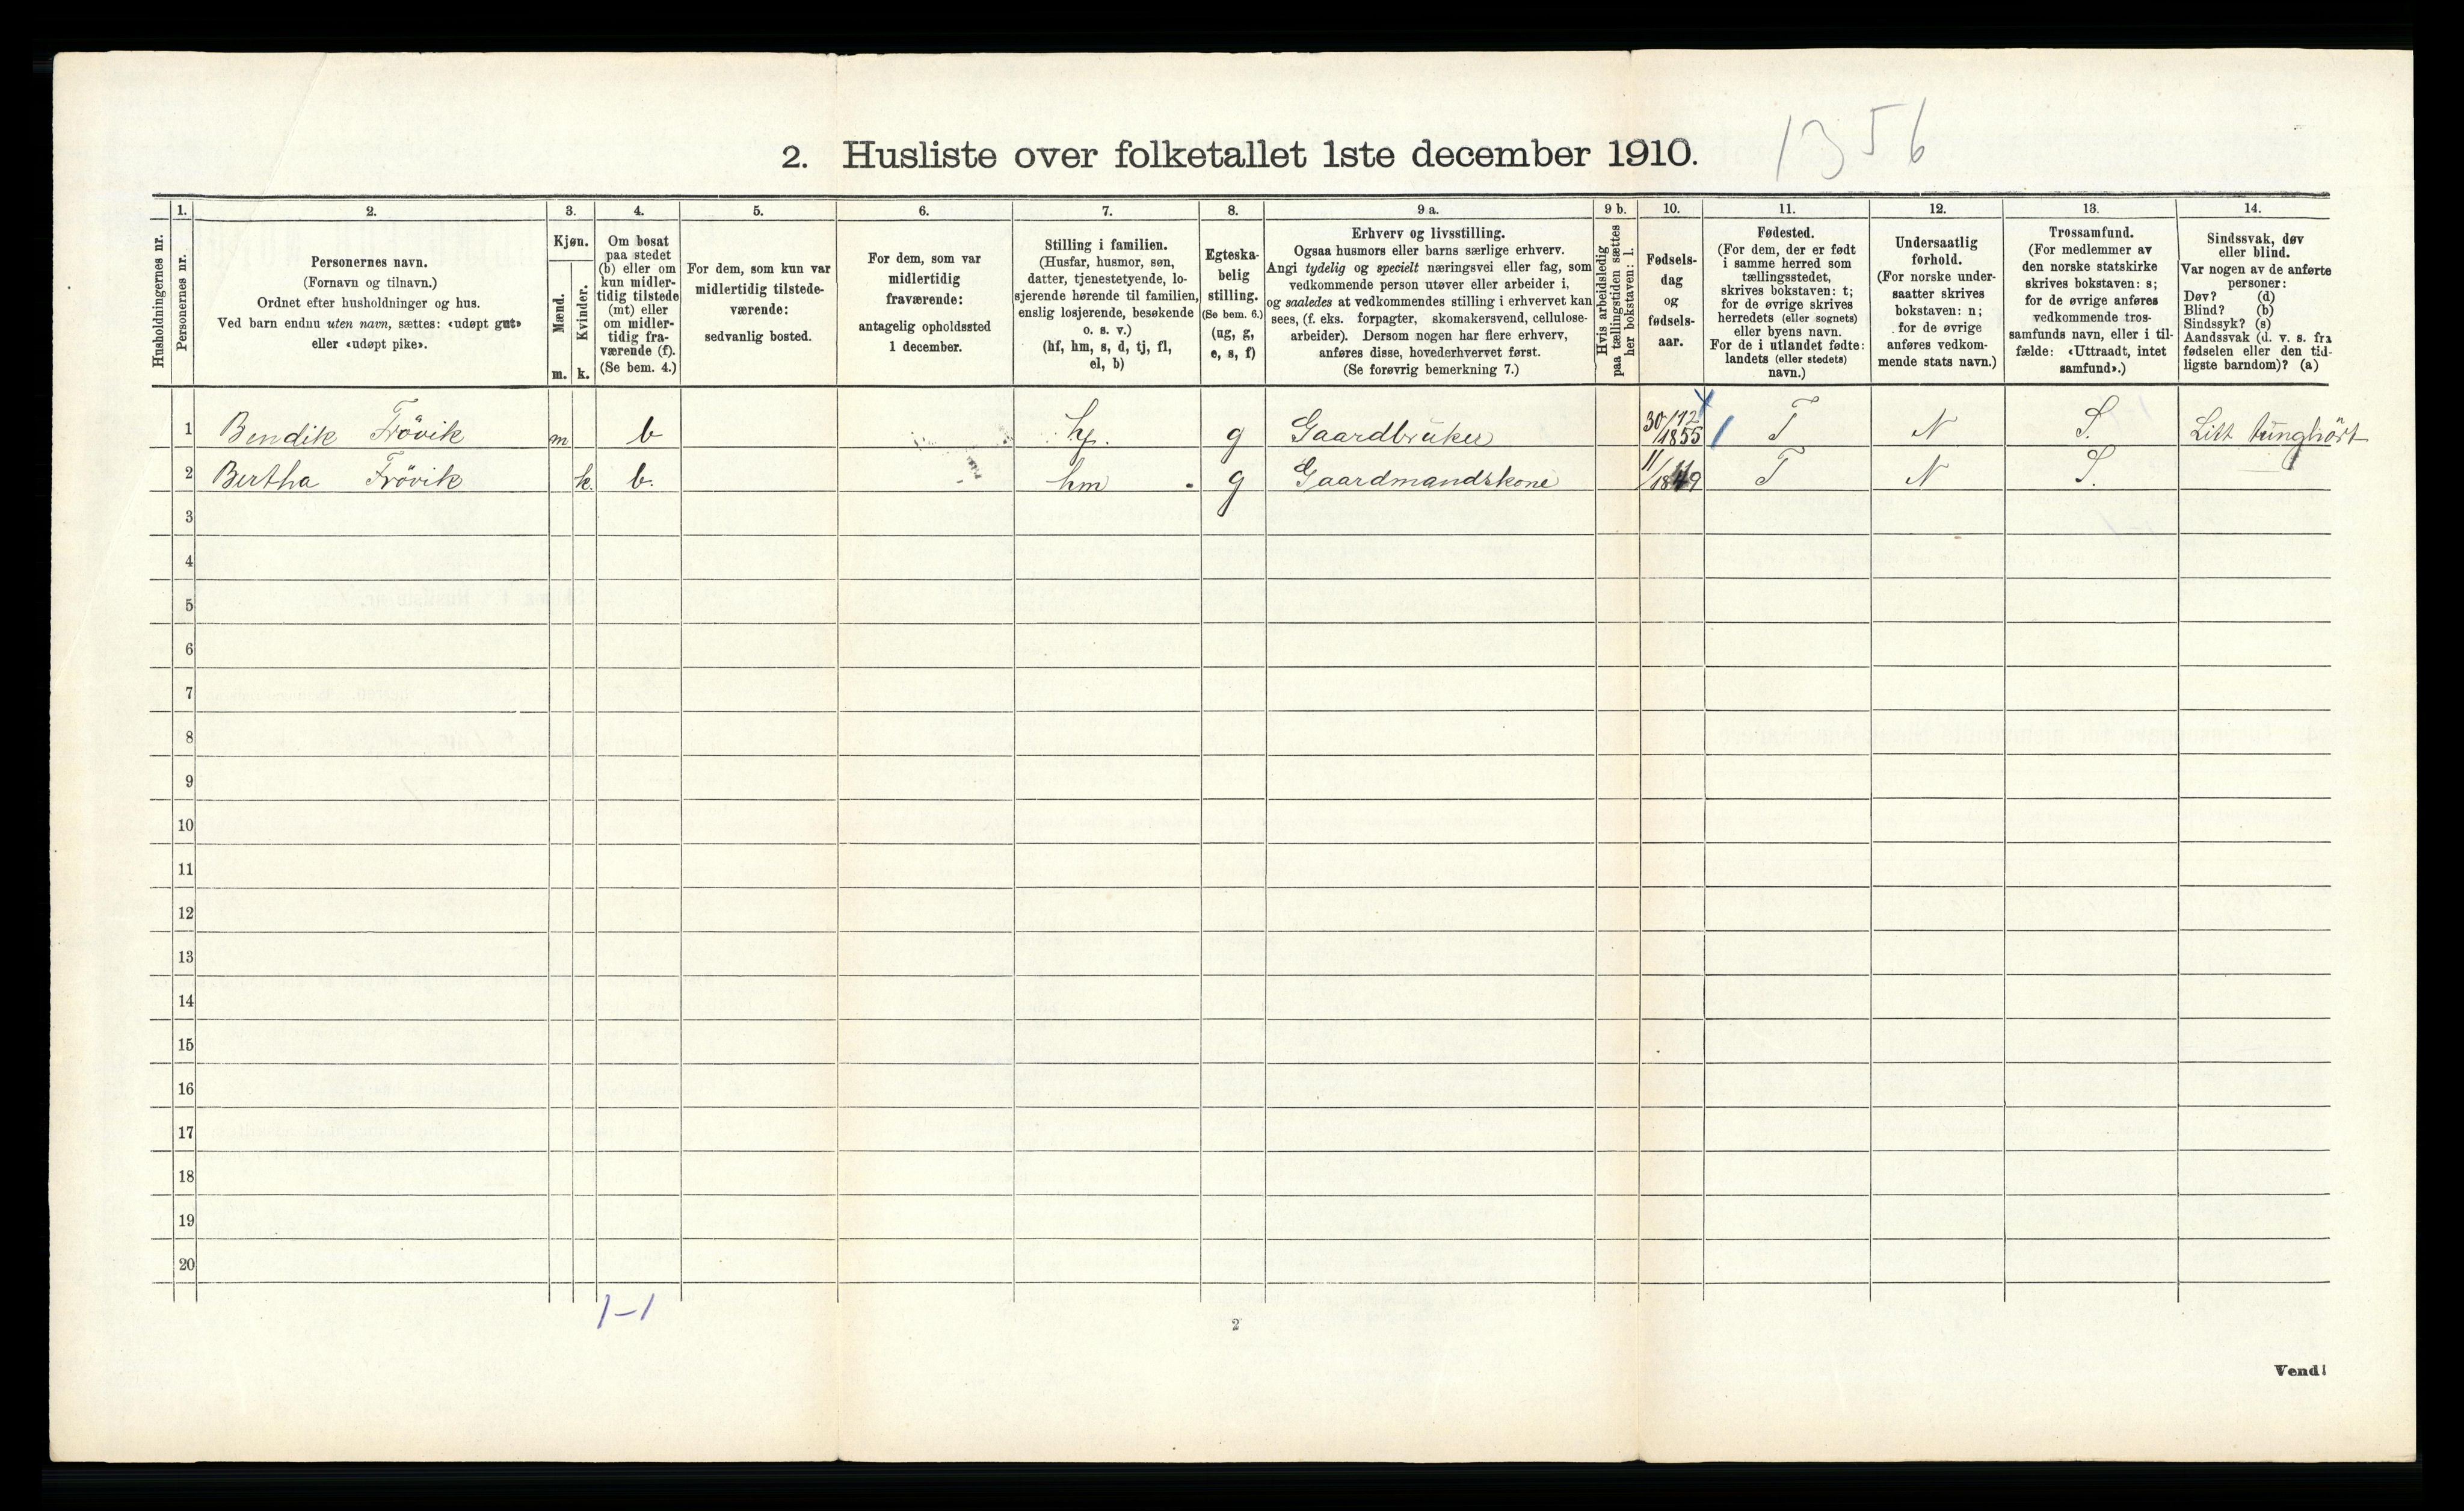 1356
2. Husliste over folketallet 1ste december 1910.
Husholdningernes nr.
1.
Personernes nr.
2.
Personernes navn.
(Fornavn og tilnavn.)
Ordnet efter husholdninger og hus.
Ved barn endnu uten navn, sættes: «udøpt gut»
eller «udøpt pike».
3.
Kjøn.
Mænd.
Kvinder.
m. k.
4.
Om bosat
paa stedet
(b) eller om
kun midler-
tidig tilstede
(mt) eller
om midler-
tidig fra-
værende (f).
(Se bem. 4.)
5.
For dem, som kun var
midlertidig tilstede-
værende:
sedvanlig bosted.
6.
For dem, som var
midlertidig
fraværende:
antagelig opholdssted
1 december.
7.
Stilling i familien.
(Husfar, husmor, søn,
datter, tjenestetyende, lo-
sjerende hørende til familien,
enslig losjerende, besøkende
o. s. v.)
(hf, hm, s, d, tj, fl,
el, b)
8.
Egteska-
belig
stilling.
(Se bem. 6.)
(ug, g,
e, s, f)
9 a.
Erhverv og livsstilling.
Ogsaa husmors eller barns særlige erhverv.
Angi tydelig og specielt næringsvei eller fag, som
vedkommende person utøver eller arbeider i,
og saaledes at vedkommendes stilling i erhvervet kan
sees, (f. eks. forpagter, skomakersvend, cellulose-
arbeider). Dersom nogen har flere erhverv,
anføres disse, hovederhvervet først.
(Se forøvrig bemerkning 7.)
9 b.
Hvis arbeidsledig
paa tællingstiden sættes
her bokstaven: l.
10.
Fødsels-
dag
og
fødsels-
aar.
11.
Fødested.
(For dem, der er født
i samme herred som
tællingsstedet,
skrives bokstaven: t;
for de øvrige skrives
herredets (eller sognets)
eller byens navn.
For de i utlandet fødte:
landets (eller stedets)
navn.)
12.
Undersaatlig
forhold.
(For norske under-
saatter skrives
bokstaven: n;
for de øvrige
anføres vedkom-
mende stats navn.)
13.
Trossamfund.
(For medlemmer av
den norske statskirke
skrives bokstaven: s;
for de øvrige anføres
vedkommende tros-
samfunds navn, eller i til-
fælde: «Uttraadt, intet
samfund».)
14.
Sindssvak, døv
eller blind.
Var nogen av de anførte
personer:
Døv? (d)
Blind? (b)
Sindssyk? (s)
Aandssvak (d. v. s. fra
fødselen eller den tid-
ligste barndom)? (a)
1 Bendik Frövik m b hf. g Gaardbrüker 30/12 1855 T N S. Litt tünghört
2 Bertha Frövik k. b. hm g Gaardmandskone 11/11 1849 T N S.
3
4
5
6
7
8
9
10
11
12
13
14
15
16
17
18
19
20
1-1
2
Vend!